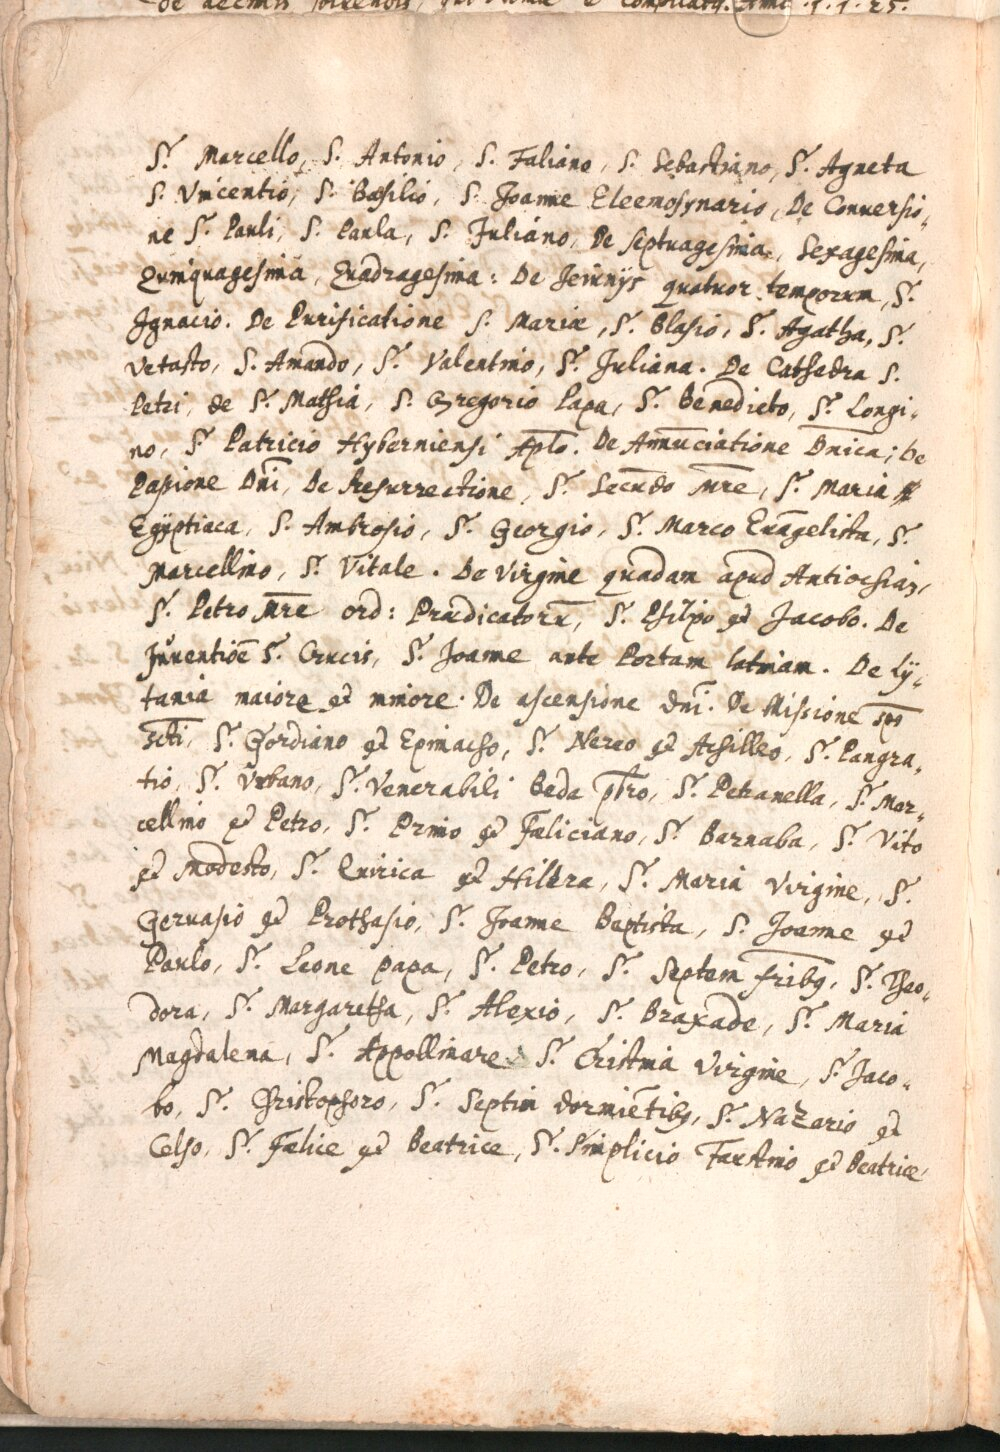 de decimis solvendis,
S. Marcello, S. Antonio, S. Faliano, S. Sebastiano, S. Agneta
S. Vincentio, S. Basilio, S. Joanne Eleemosynario, De Conuersio-
ne S. Pauli, S. Paula, S. Juliano, De septuagesima, Sexagesima,
Quinquagesima, Quadragesima: De Jeiunijs quatuor temporum, S.
Ignacio. De Purificatione S. Mariæ, S. Blasio, S. Agatha, S.
Vetasto, S. Amando, S. Valentino, S. Juliana. De Cathedra S.
Petri, de S. Mathia, S. Gregorio Papa, S. Benedicto, S. Longi-
no, S. Patricio Hyberniensi Aplo. De Annuciatione Dnica; De
Passione Dni, De Resurrectione, S. Secundo Mre, S. Maria
Egÿptiaca, S. Ambrosio, S. Georgio, S. Marco Euāgelista, S.
Marcellino, S. Vitale. De Virgine quadam apud Antiochiā,
S. Petro Mre ord: Prædicatorū, S. Philipo et Jacobo. De
Inuentiōe S. Crucis, S. Joanne ante Portam latinam. De Lÿ-
tania maiore et minore. De ascensione dni. De Missione spo
scti, S. Gordiano et Epimacho, S. Nereo et Achilleo, S. Pangra-
tio, S. Vrbano, S. Venerabili Beda pbro, S. Petranella, S. Mar-
cellino et Petro, S. Primo et Fæliciano, S. Barnaba, S. Vito
et Modesto, S. Quirica et S. Maria Virgine, S.
Geruasio et Prothasio, S. Joanne Baptista, S. Joanne et
Paulo, S. Leone papa, S. Petro, S. Septem fribus, S. Theo-
dora, S. Margaretha, S. Alexio, S. Braxade, S. Maria
Magdalena, S. Appollinare S. Christina Virgine, S. Jaco-
bo, S. Christophoro, S. Septin dormiētibus, S. Nazario et
Celso, S. Fælice et Beatrice, S. Simplicio Faustino et Beatrice,